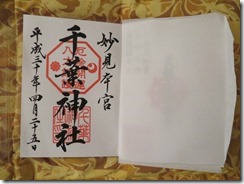 妙見本宮
千葉神社
平成三十年四月二十五日